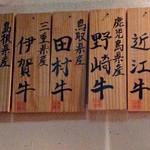 近江牛
鹿児島県産
野崎牛
鳥取県産
田村牛
三重県産
伊賀牛
島根県産